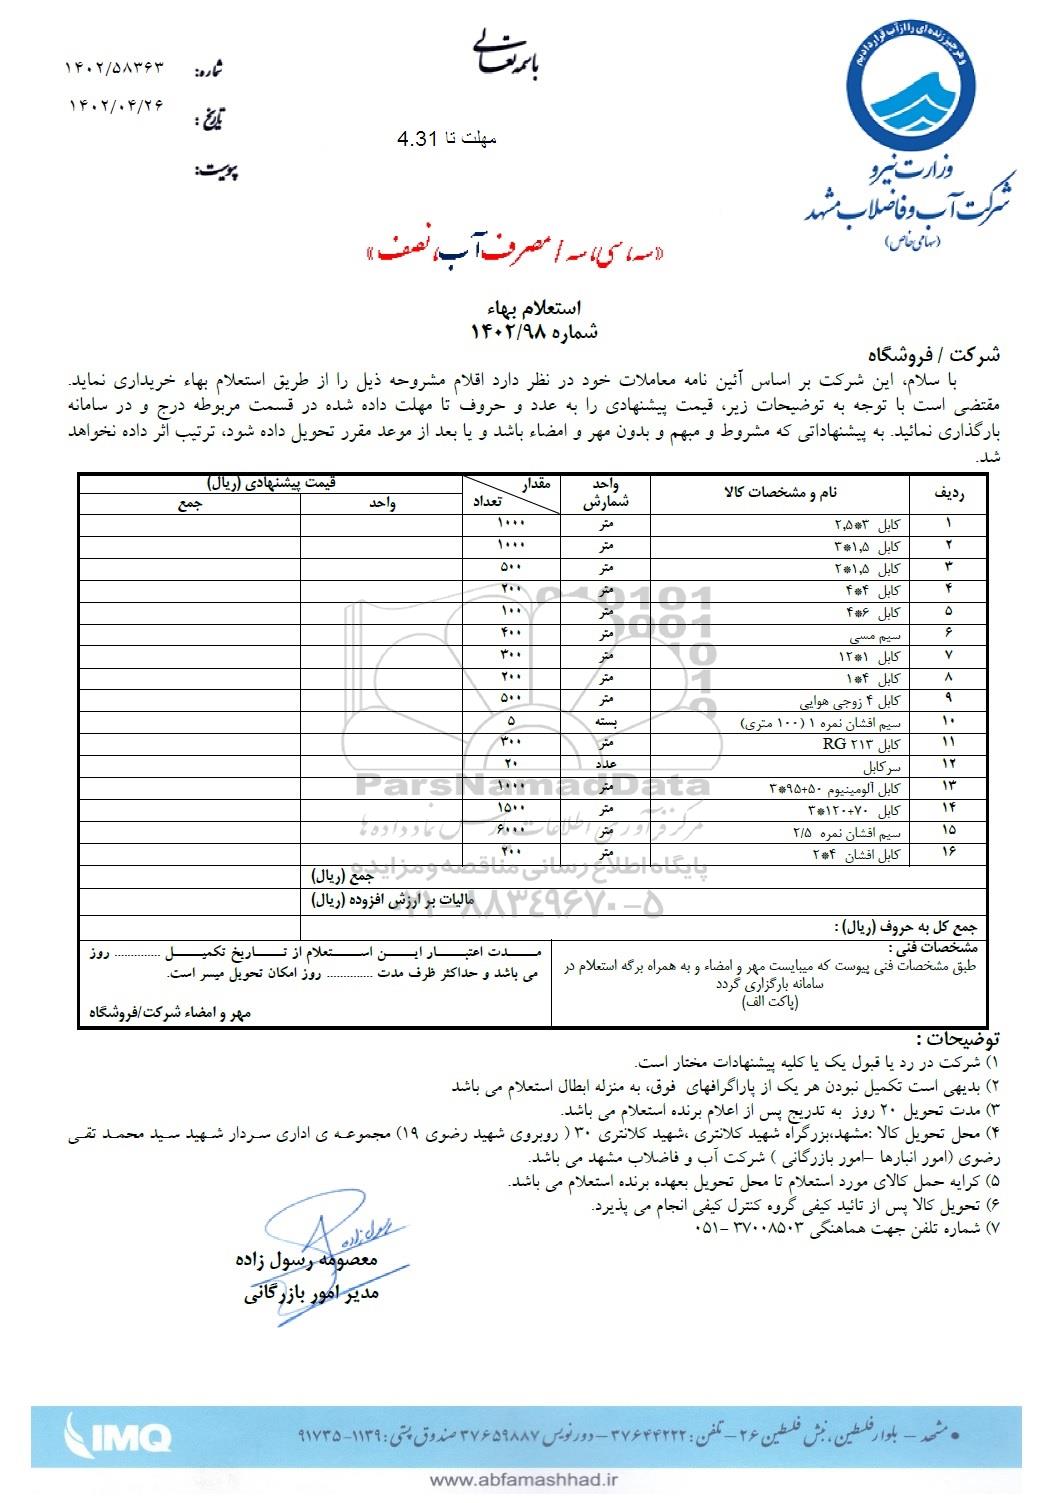 وهر چیز زنده ای را از آب قرار دادیم
وزارت نیرو
شرکت آب و فاضلاب مشهد
(سهامی خاص)
باسمه تعالی
شماره: ۱۴۰۲/۵۸۳۶۳
تاریخ: ۱۴۰۲/۰۴/۲۶
پیوست:
مهلت تا 4.31
«سه، سی، سه / مصرف آب، نصف»
استعلام بهاء
شماره ۱۴۰۲/۹۸
شرکت / فروشگاه
با سلام، این شرکت بر اساس آئین نامه معاملات خود در نظر دارد اقلام مشروحه ذیل را از طریق استعلام بهاء خریداری نماید.
مقتضی است با توجه به توضیحات زیر، قیمت پیشنهادی را به عدد و حروف تا مهلت داده شده در قسمت مربوطه درج و در سامانه
بارگذاری نمائید. به پیشنهاداتی که مشروط و مبهم و بدون مهر و امضاء باشد و یا بعد از موعد مقرر تحویل داده شود، ترتیب اثر داده نخواهد
شد.
ردیف نام و مشخصات کالا واحد شمارش مقدار تعداد قیمت پیشنهادی (ریال)
واحد جمع
۱ کابل ۳*۲,۵ متر ۱۰۰۰
۲ کابل ۱,۵*۳ متر ۱۰۰۰
۳ کابل ۱,۵*۲ متر ۵۰۰
۴ کابل ۴*۴ متر ۲۰۰
۵ کابل ۶*۴ متر ۱۰۰
۶ سیم مسی متر ۴۰۰
۷ کابل ۱*۱۲ متر ۳۰۰
۸ کابل ۴*۱ متر ۲۰۰
۹ کابل ۴ زوجی هوایی متر ۵۰۰
۱۰ سیم افشان نمره ۱ (۱۰۰ متری) بسته ۵
۱۱ کابل RG ۲۱۳ متر ۳۰۰
۱۲ سرکابل عدد ۲۰
۱۳ کابل آلومینیوم ۵۰+۹۵*۳ متر ۱۰۰۰
۱۴ کابل ۷۰+۱۲۰*۳ متر ۱۵۰۰
۱۵ سیم افشان نمره ۲/۵ متر ۶۰۰۰
۱۶ کابل افشان ۴*۲ متر ۲۰۰
جمع (ریال)
مالیات بر ارزش افزوده (ریال)
جمع کل به حروف (ریال) :
مشخصات فنی :
طبق مشخصات فنی پیوست که میبایست مهر و امضاء و به همراه برگه استعلام در
سامانه بارگزاری گردد
(پاکت الف)
مدت اعتبار این استعلام از تاریخ تکمیل .............. روز
می باشد و حداکثر ظرف مدت .............. روز امکان تحویل میسر است.
مهر و امضاء شرکت/فروشگاه
ParsNamadData
مرکز فرآوری اطلاعات پارس نماد داده ها
پایگاه اطلاع رسانی مناقصه و مزایده
۰۲۱-۸۸۳۴۹۶۷۰-۵
توضیحات :
۱) شرکت در رد یا قبول یک یا کلیه پیشنهادات مختار است.
۲) بدیهی است تکمیل نبودن هر یک از پاراگرافهای فوق، به منزله ابطال استعلام می باشد
۳) مدت تحویل ۲۰ روز به تدریج پس از اعلام برنده استعلام می باشد.
۴) محل تحویل کالا :مشهد،بزرگراه شهید کلانتری ،شهید کلانتری ۳۰ ( روبروی شهید رضوی ۱۹) مجموعه ی اداری سردار شهید سید محمد تقی
رضوی (امور انبارها –امور بازرگانی ) شرکت آب و فاضلاب مشهد می باشد.
۵) کرایه حمل کالای مورد استعلام تا محل تحویل بعهده برنده استعلام می باشد.
۶) تحویل کالا پس از تائید کیفی گروه کنترل کیفی انجام می پذیرد.
۷) شماره تلفن جهت هماهنگی ۳۷۰۰۸۵۰۳ –۰۵۱
رسول زاده
معصومه رسول زاده
مدیر امور بازرگانی
• مشهد – بلوار فلسطین ، نبش فلسطین ۲۶ – تلفن : ۳۷۶۴۴۲۲۲ – دورنویس ۳۷۶۵۹۸۸۷ صندوق پستی : ۱۱۳۹-۹۱۷۳۵
IMQ
www.abfamashhad.ir